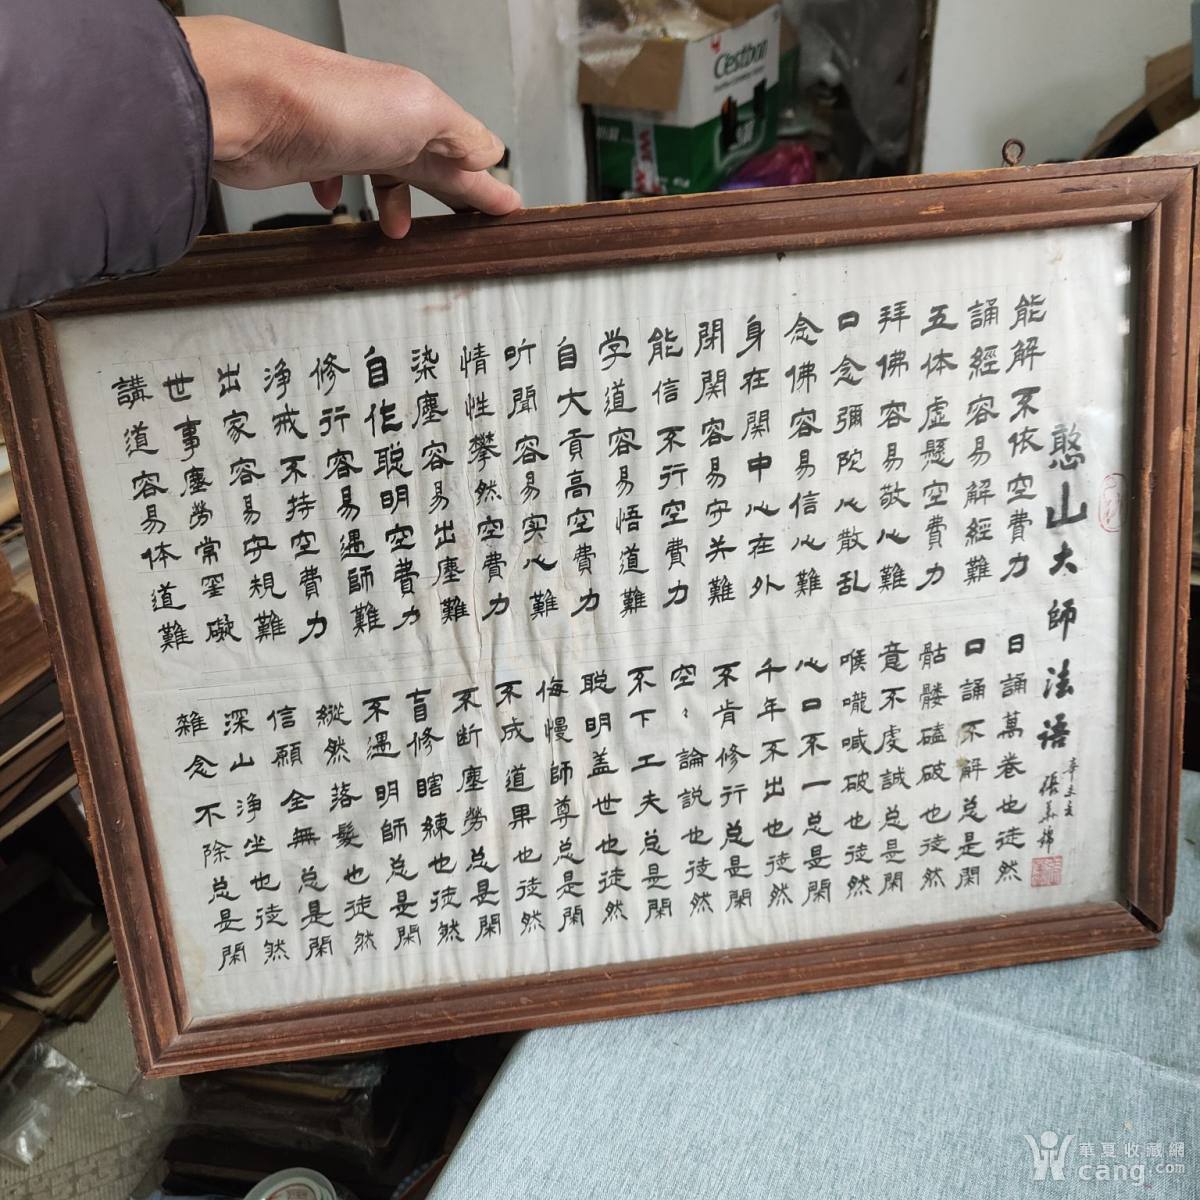 憨山大師法語
講道容易体道難
雜念不除总是閑
世事塵勞常罣礙
深山净坐也徒然
出家容易守規難
信願全無总是閑
净戒不持空費力
縱然落髮也徒然
修行容易遇師難
不遇明師总是閑
自作聪明空費力
盲修瞎練也徒然
染塵容易出塵難
不断塵勞总是閑
情性攀然空費力
不成道果也徒然
听聞容易实心難
侮慢師尊总是閑
自大貢高空費力
聪明盖世也徒然
学道容易悟道難
不下工夫总是閑
能信不行空費力
空〻論説也徒然
閉関容易守关難
不肯修行总是閑
身在関中心在外
千年不出也徒然
念佛容易信心難
心口不一总是閑
口念彌陀心散乱
喉嚨喊破也徒然
拜佛容易敬心難
意不虔誠总是閑
五体虛懸空費力
骷髏磕破也徒然
誦經容易解經難
口誦不解总是閑
能解不依空費力
日誦萬卷也徒然
Cestbon
華夏收藏網
cang.com